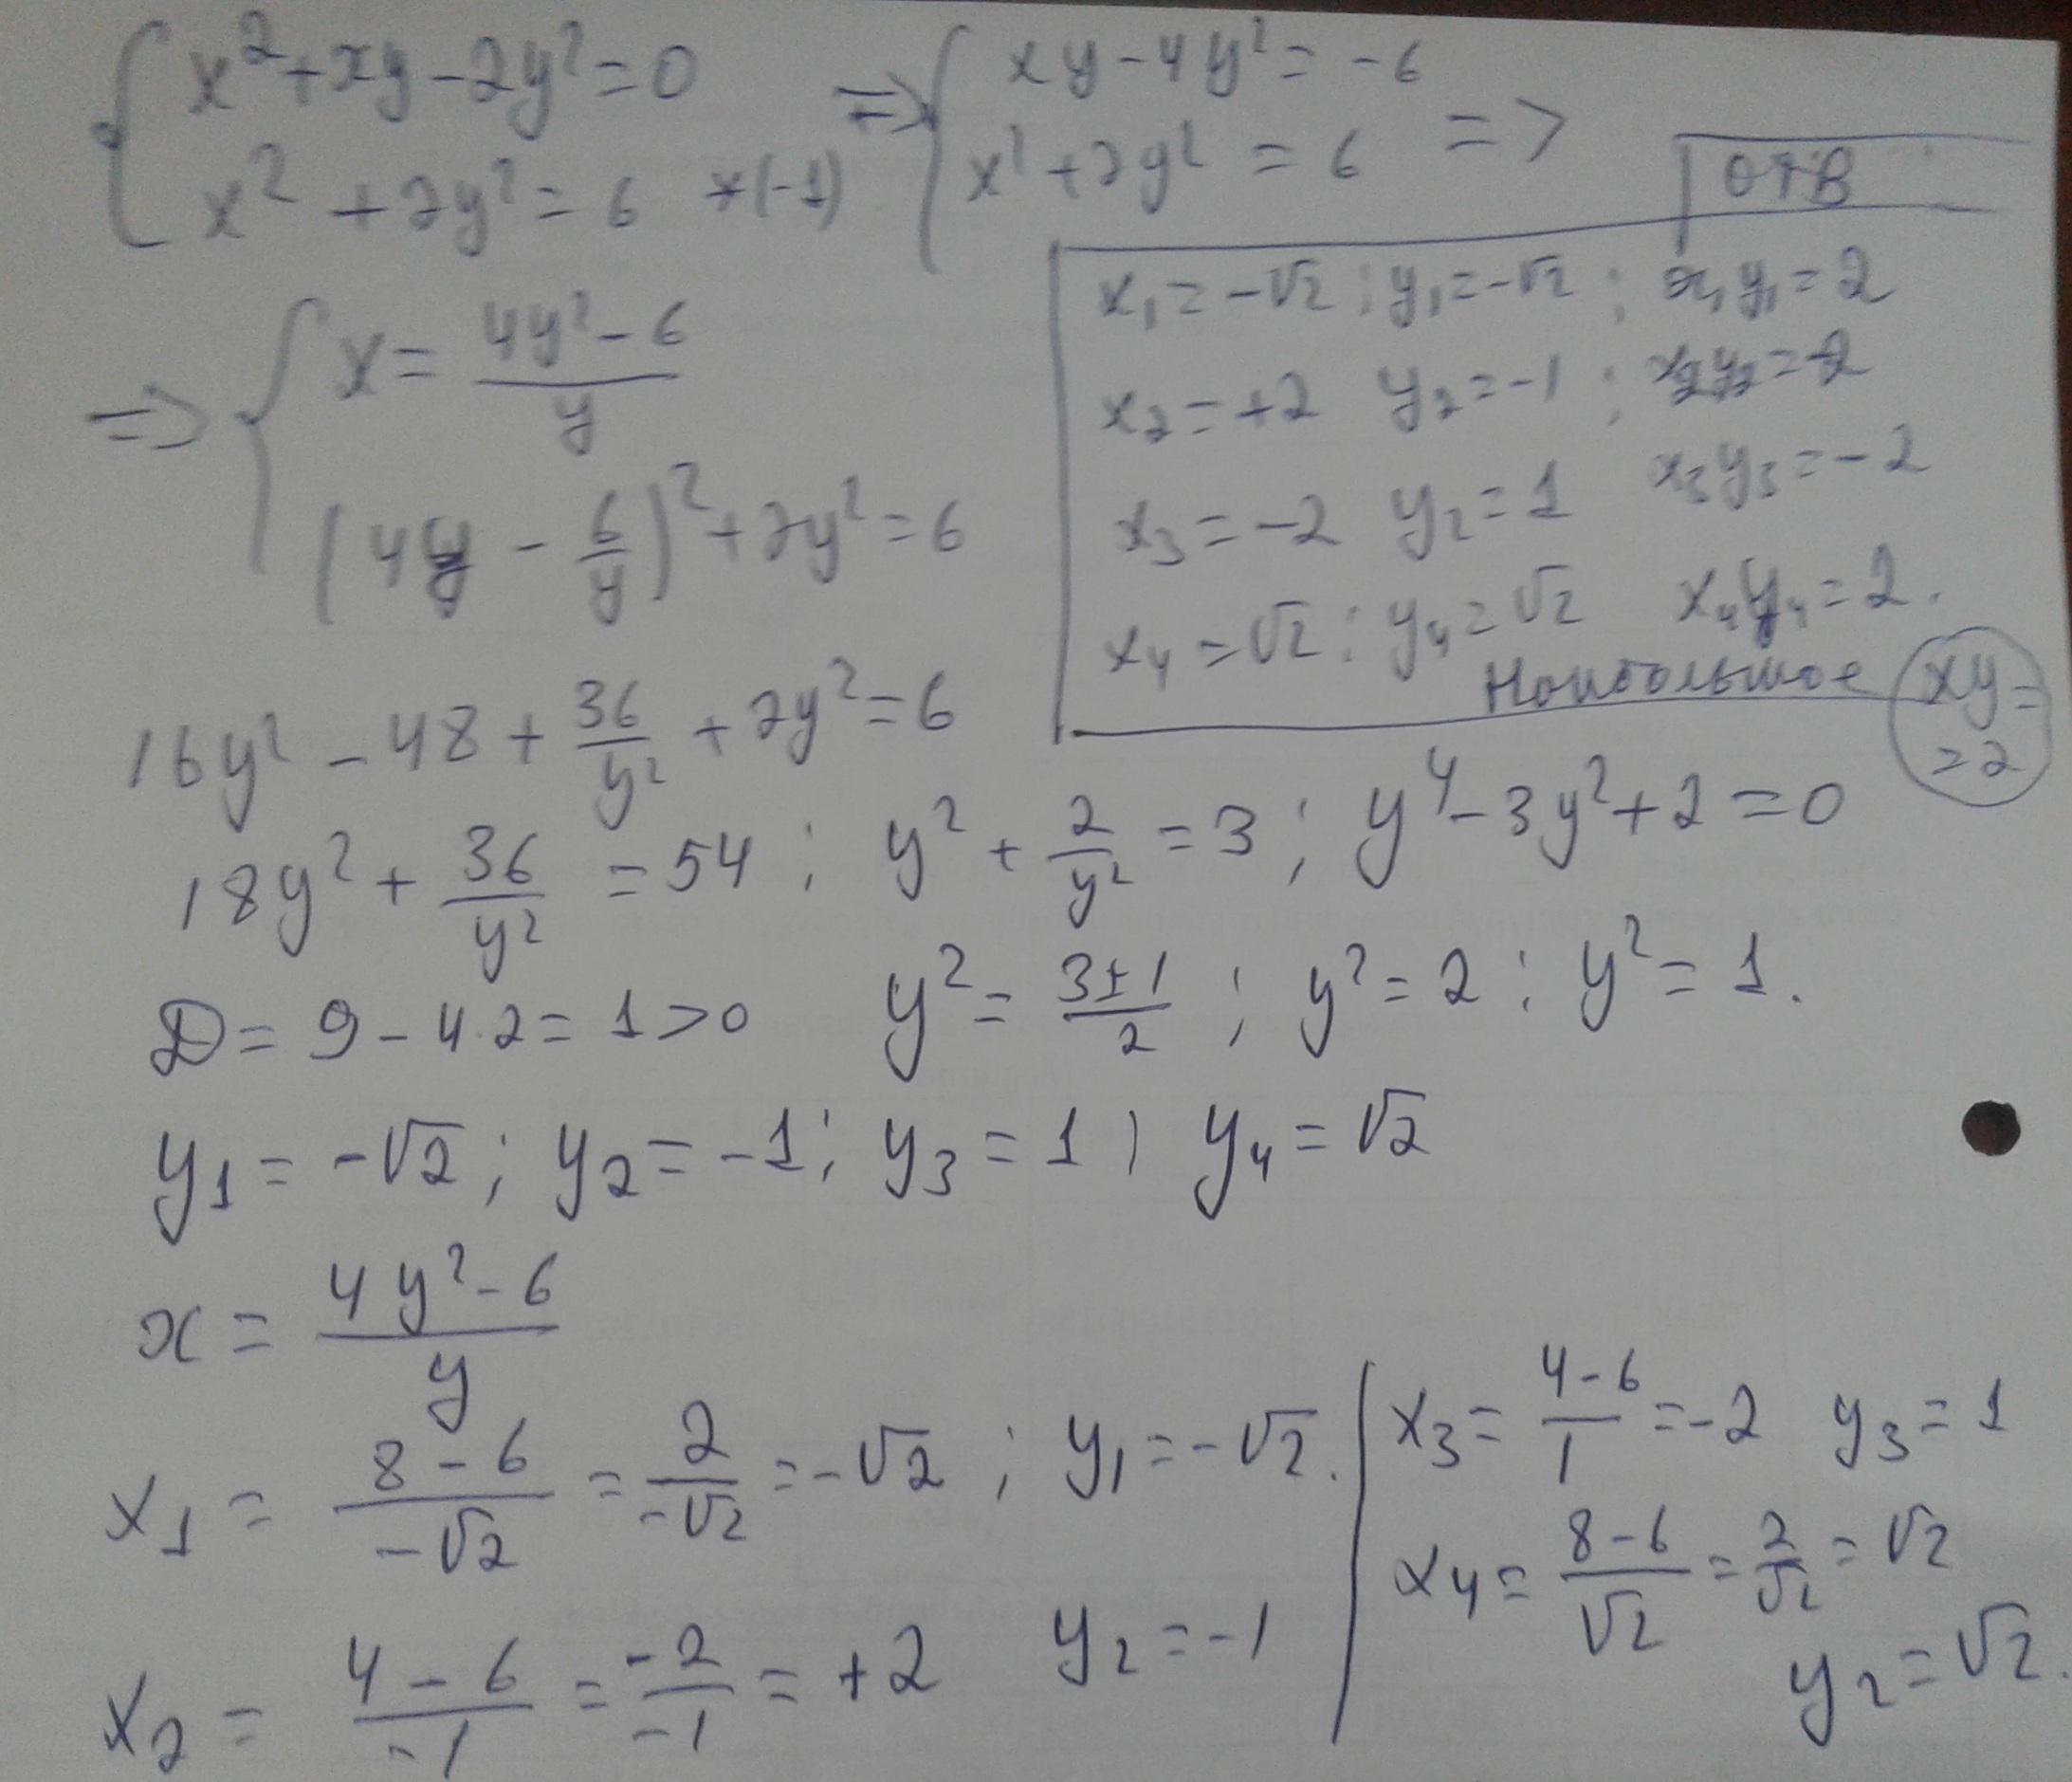 x² + xy - 2y² = 0 => xy - 4y² = -6
x² + 2y² = 6 *(-1) x² + 2y² = 6 =>
отв
x₁ = -√2 ; y₁ = -√2 ; x₁y₁ = 2
x₂ = +2 y₂ = -1 ; x₂y₂ = -2
x₃ = -2 y₂ = 1 x₃y₃ = -2
x₄ = √2 ; y₄ = √2 x₄y₄ = 2.
Наибольшое xy =
= 2
=> x = (4y² - 6)/y
(4y - 6/y)² + 2y² = 6
16y² - 48 + 36/y² + 2y² = 6
18y² + 36/y² = 54 ; y² + 2/y² = 3 ; y⁴ - 3y² + 2 = 0
D = 9 - 4·2 = 1 > 0 y² = (3±1)/2 ; y² = 2 ; y² = 1.
y₁ = -√2 ; y₂ = -1 ; y₃ = 1 ; y₄ = √2
x = (4y² - 6)/y
x₁ = (8 - 6)/(-√2) = 2/(-√2) = -√2 ; y₁ = -√2.
x₂ = (4 - 6)/(-1) = (-2)/(-1) = +2 y₂ = -1
x₃ = (4 - 6)/1 = -2 y₃ = 1
x₄ = (8 - 6)/√2 = 2/√2 = √2
y₂ = √2.